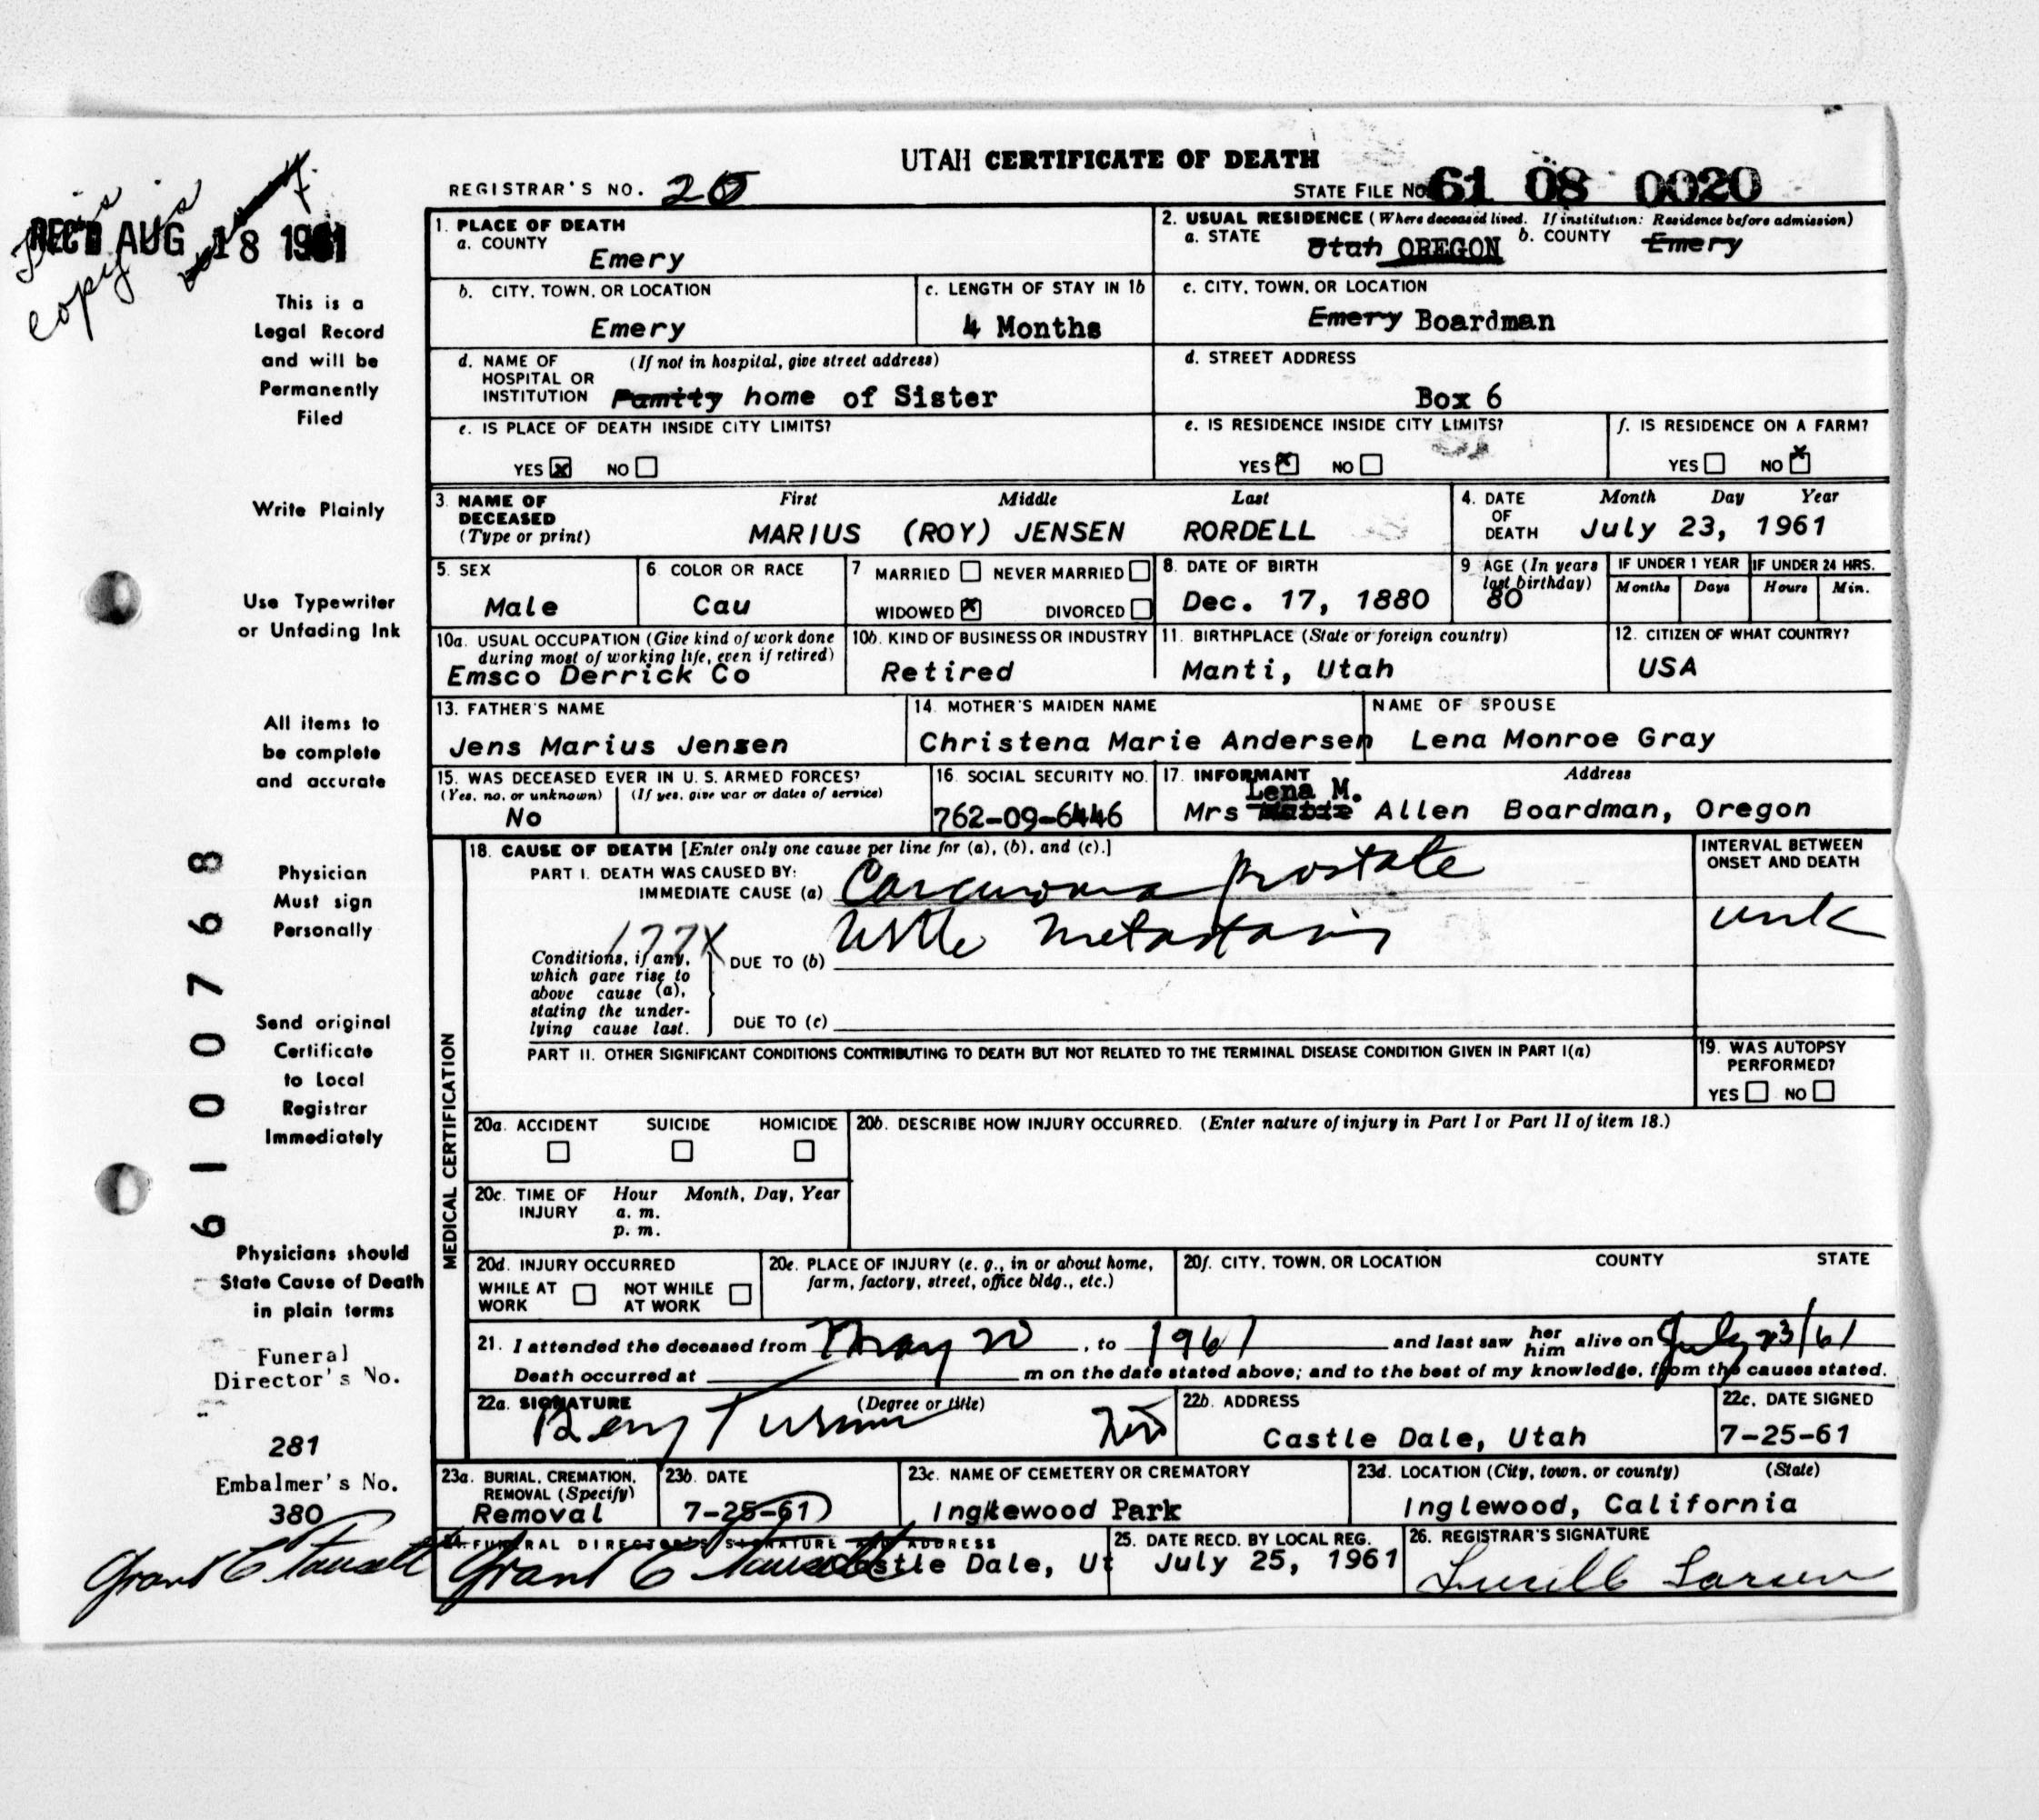 UTAH CERTIFICATE OF DEATH
REGISTRAR'S NO. 20
STATE FILE NO. 61 08 0020
REC'D AUG 18 1961
copy
This is a
Legal Record
and will be
Permanently
Filed
Write Plainly
Use Typewriter
or Unfading Ink
All items to
be complete
and accurate
Physician
Must sign
Personally
Send original
Certificate
to Local
Registrar
Immediately
Physicians should
State Cause of Death
in plain terms
Funeral
Director's No.
281
Embalmer's No.
380
6100768
1. PLACE OF DEATH
a. COUNTY
Emery
2. USUAL RESIDENCE (Where deceased lived. If institution: Residence before admission)
a. STATE Utah OREGON b. COUNTY Emery
b. CITY, TOWN, OR LOCATION
Emery
c. LENGTH OF STAY IN 1b
4 Months
c. CITY, TOWN, OR LOCATION
Emery Boardman
d. NAME OF HOSPITAL OR INSTITUTION (If not in hospital, give street address)
Family home of Sister
d. STREET ADDRESS
Box 6
e. IS PLACE OF DEATH INSIDE CITY LIMITS?
YES x NO
e. IS RESIDENCE INSIDE CITY LIMITS?
YES x NO
f. IS RESIDENCE ON A FARM?
YES NO x
3. NAME OF DECEASED (Type or print)
First Middle Last
MARIUS (ROY) JENSEN RORDELL
4. DATE OF DEATH Month Day Year
July 23, 1961
5. SEX
Male
6. COLOR OR RACE
Cau
7 MARRIED NEVER MARRIED
WIDOWED x DIVORCED
8. DATE OF BIRTH
Dec. 17, 1880
9 AGE (In years last birthday)
80
IF UNDER 1 YEAR
Months Days
IF UNDER 24 HRS.
Hours Min.
10a. USUAL OCCUPATION (Give kind of work done during most of working life, even if retired)
Emsco Derrick Co
10b. KIND OF BUSINESS OR INDUSTRY
Retired
11. BIRTHPLACE (State or foreign country)
Manti, Utah
12. CITIZEN OF WHAT COUNTRY?
USA
13. FATHER'S NAME
Jens Marius Jensen
14. MOTHER'S MAIDEN NAME
Christena Marie Andersen
NAME OF SPOUSE
Lena Monroe Gray
15. WAS DECEASED EVER IN U. S. ARMED FORCES?
(Yes, no, or unknown) (If yes, give war or dates of service)
No
16. SOCIAL SECURITY NO.
762-09-6446
17. INFORMANT Address
Lena M.
Mrs Allen Boardman, Oregon
MEDICAL CERTIFICATION
18. CAUSE OF DEATH [Enter only one cause per line for (a), (b), and (c).]
PART I. DEATH WAS CAUSED BY:
IMMEDIATE CAUSE (a) Carcinoma prostate
INTERVAL BETWEEN ONSET AND DEATH
unk
177X
Conditions, if any, which gave rise to above cause (a), stating the underlying cause last.
DUE TO (b) metastasis
DUE TO (c)
PART II. OTHER SIGNIFICANT CONDITIONS CONTRIBUTING TO DEATH BUT NOT RELATED TO THE TERMINAL DISEASE CONDITION GIVEN IN PART I(a)
19. WAS AUTOPSY PERFORMED?
YES NO
20a. ACCIDENT SUICIDE HOMICIDE
20b. DESCRIBE HOW INJURY OCCURRED. (Enter nature of injury in Part I or Part II of item 18.)
20c. TIME OF INJURY Hour Month, Day, Year
a. m.
p. m.
20d. INJURY OCCURRED
WHILE AT WORK NOT WHILE AT WORK
20e. PLACE OF INJURY (e. g., in or about home, farm, factory, street, office bldg., etc.)
20f. CITY, TOWN, OR LOCATION COUNTY STATE
21. I attended the deceased from May 20, to 1961 and last saw her him alive on July 23/61
Death occurred at m on the date stated above; and to the best of my knowledge, from the causes stated.
22a. SIGNATURE (Degree or title)
22b. ADDRESS
Castle Dale, Utah
22c. DATE SIGNED
7-25-61
23a. BURIAL, CREMATION, REMOVAL (Specify)
Removal
23b. DATE
7-25-61
23c. NAME OF CEMETERY OR CREMATORY
Inglewood Park
23d. LOCATION (City, town, or county) (State)
Inglewood, California
24. FUNERAL DIRECTOR'S SIGNATURE AND ADDRESS
Castle Dale, Ut
25. DATE RECD. BY LOCAL REG.
July 25, 1961
26. REGISTRAR'S SIGNATURE
Lucille Larsen